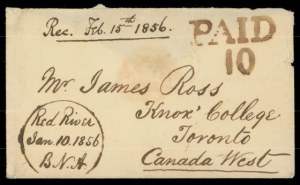 Rec. Feb. 15th 1856.
PAID
10
Mr. James Ross
Knox' College
Toronto
Canada West
Red River
Jan. 10. 1856
B.N.A